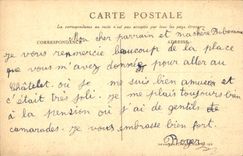 CARTE POSTALE
La correspondance au recto n'est pas acceptée par tous les pays étrangers
CORRESPONDANCE
Mon cher parrain et ma chère
Je vous remercie beaucoup de la place
que vous m'avez donnée pour aller au
Châtelet où je me suis bien amusé et
c'était très joli. Je me plais toujours bien
à la pension où j'ai de gentils
camarades. Je vous embrasse bien fort.
Roger